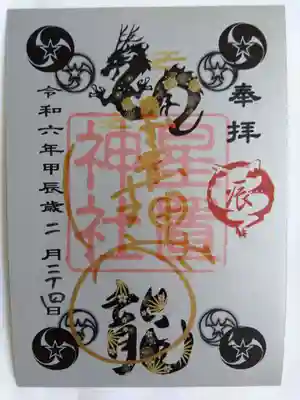 奉拝
辰
星置
神社
龍
令和六年甲辰歳二月二十四日